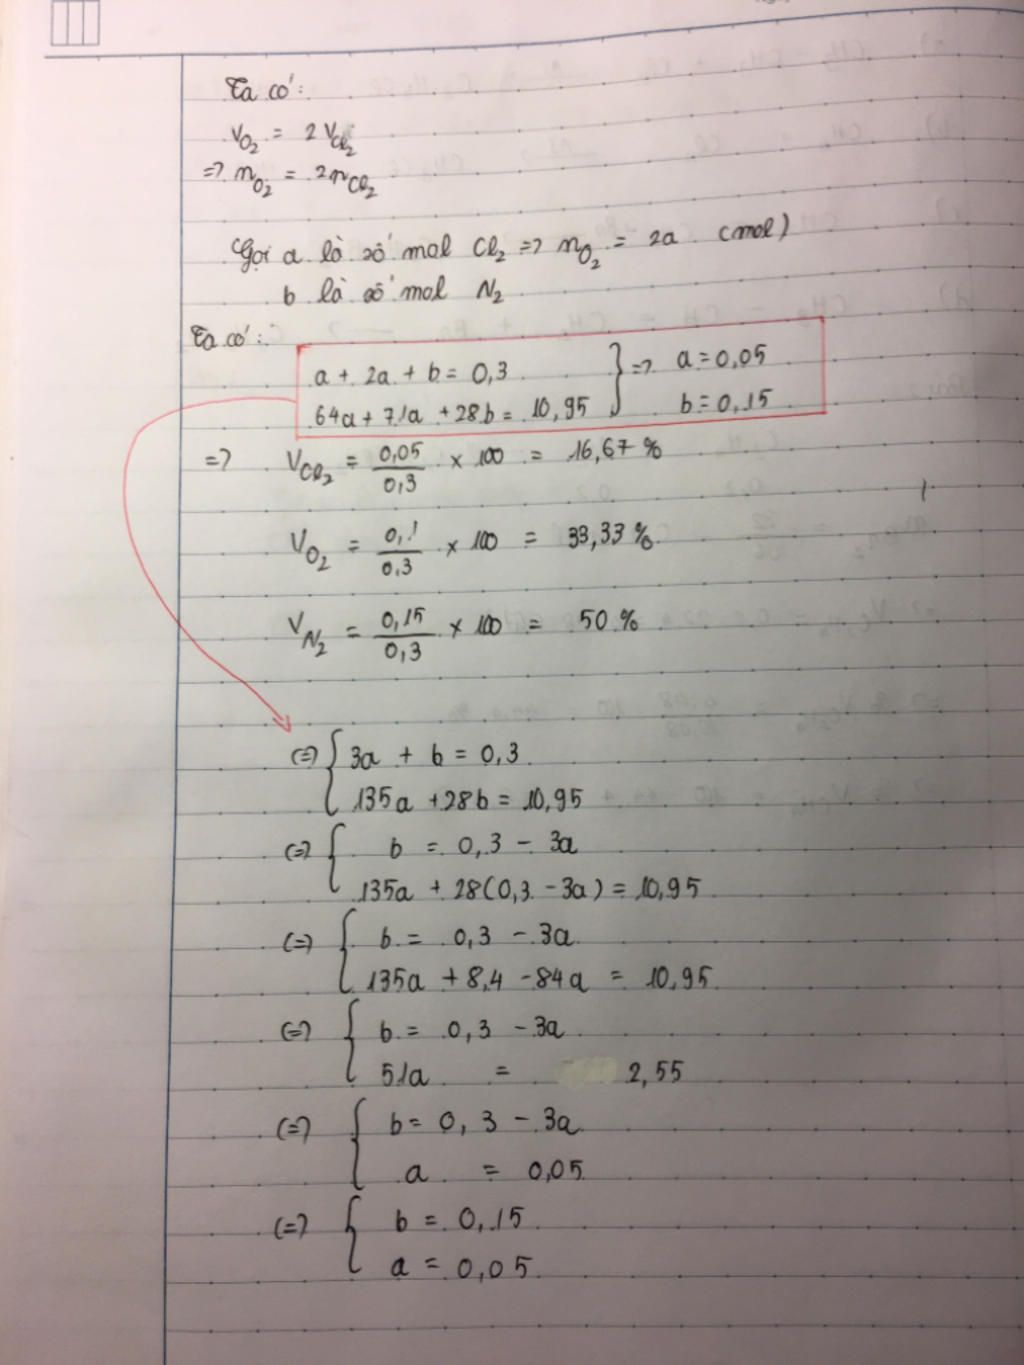 Ta có:
V_O₂ = 2 V_Cl₂
=> n_O₂ = 2n_Cl₂
Gọi a là số mol Cl₂ => n_O₂ = 2a (mol)
b là số mol N₂
Ta có:
a + 2a + b = 0,3 } => a = 0,05
64a + 71a + 28b = 10,95 b = 0,15
=> V_Cl₂ = 0,05/0,3 × 100 = 16,67 %
V_O₂ = 0,1/0,3 × 100 = 33,33 %
V_N₂ = 0,15/0,3 × 100 = 50 %
(=) { 3a + b = 0,3
135a + 28b = 10,95
(=) { b = 0,3 - 3a
135a + 28(0,3 - 3a) = 10,95
(=) { b = 0,3 - 3a
135a + 8,4 - 84a = 10,95
(=) { b = 0,3 - 3a
51a = 2,55
(=) { b = 0,3 - 3a
a = 0,05
(=) { b = 0,15
a = 0,05